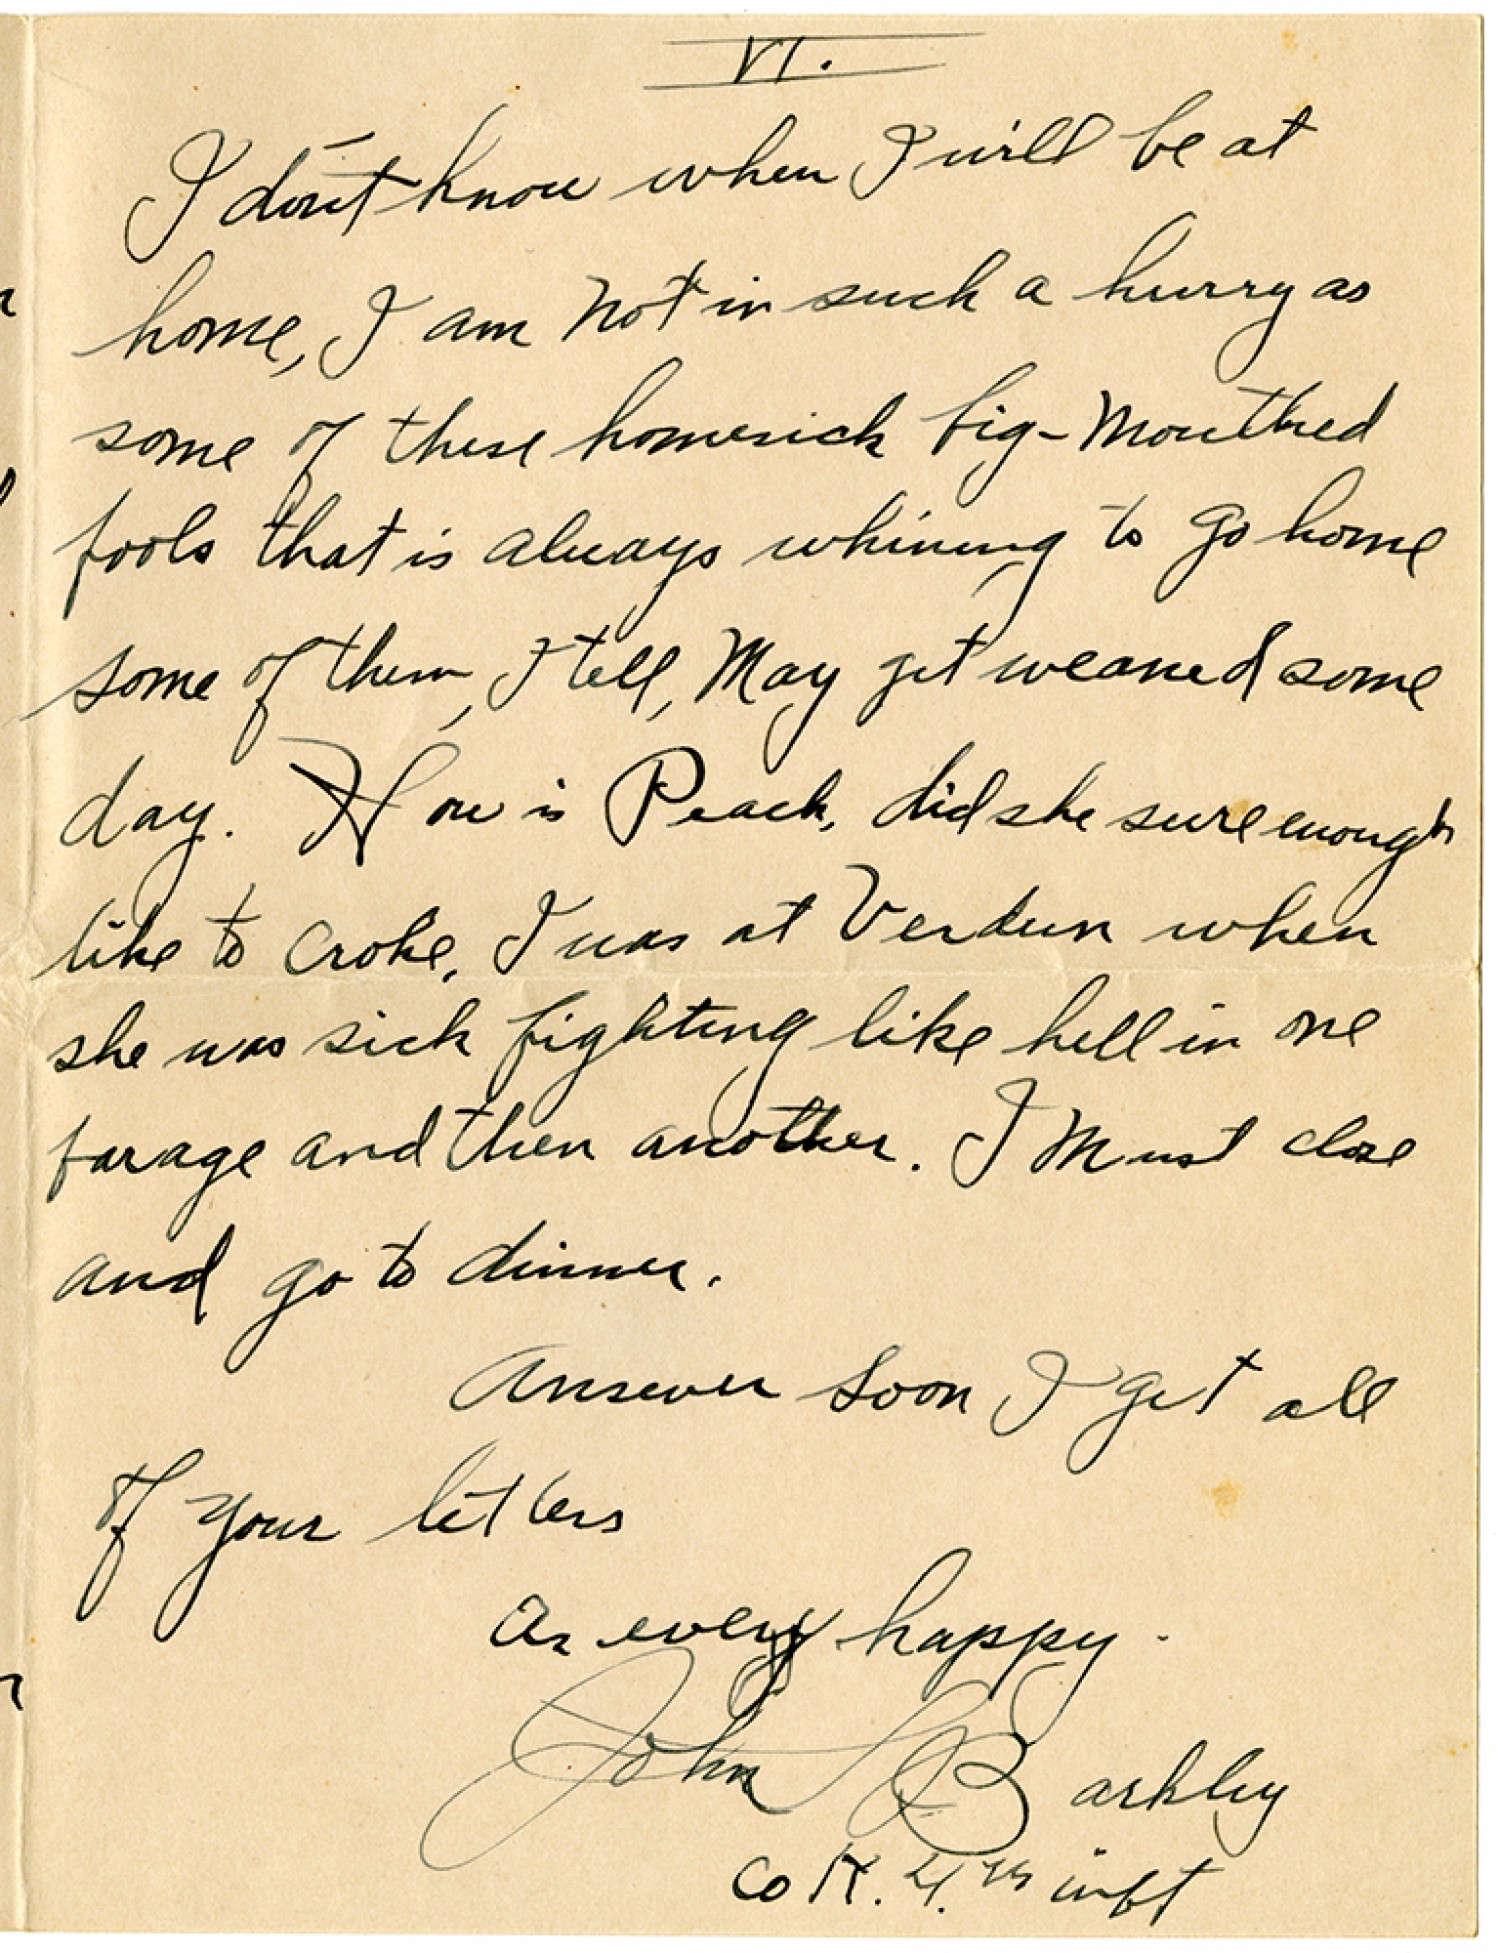 VI.
I don't know when I will be at
home, I am Not in such a hurry as
some of these homesick big-Mouthed
fools that is always whining to go home
some of them, I tell, May get weaned some
day. How is Peach, did she sure enough
like to Croke, I was at Verdun when
she was sick fighting like hell in one
farage and then another. I Must close
and go to dinner.
Answer soon I get all
of your letters
As every happy.
John L Barkley
Co K. 4.th inft